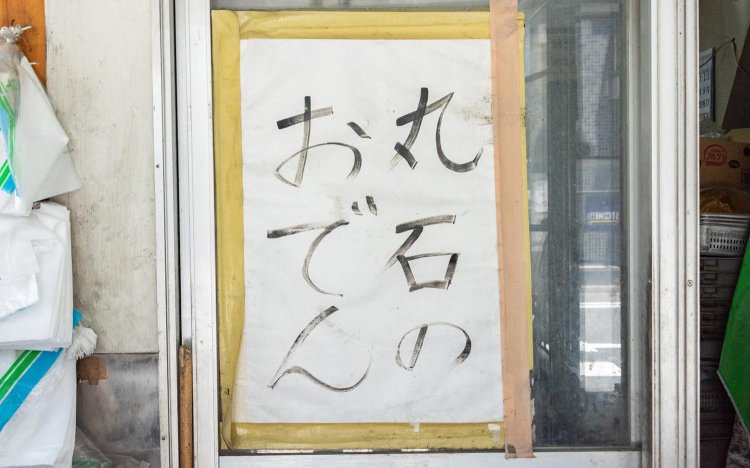 丸石の
おでん